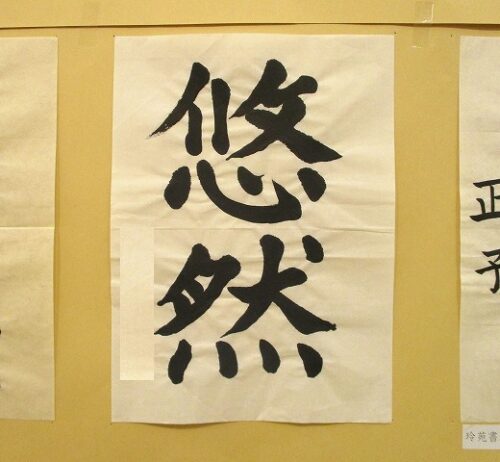 悠
然
正
予
玲苑書